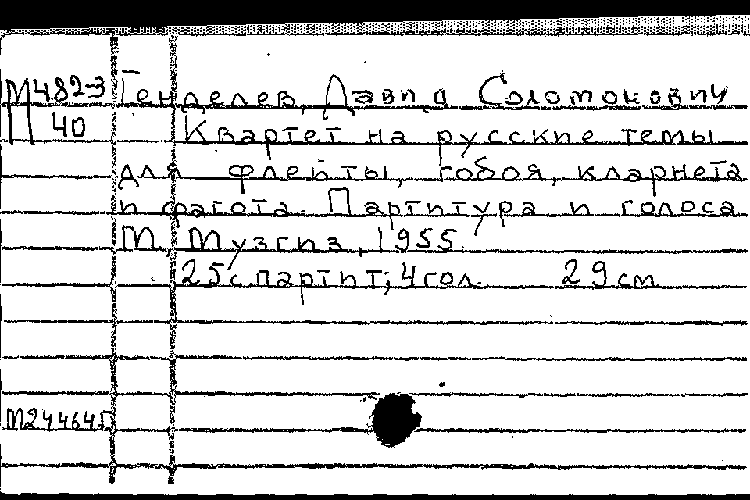 М482-3 Генделев, Давид Соломонович
40 Квартет на русские темы
для флейты, гобоя, кларнета
и фагота. Партитура и голоса
М, Музгиз, 1955.
25с.партит; 4гол. 29см